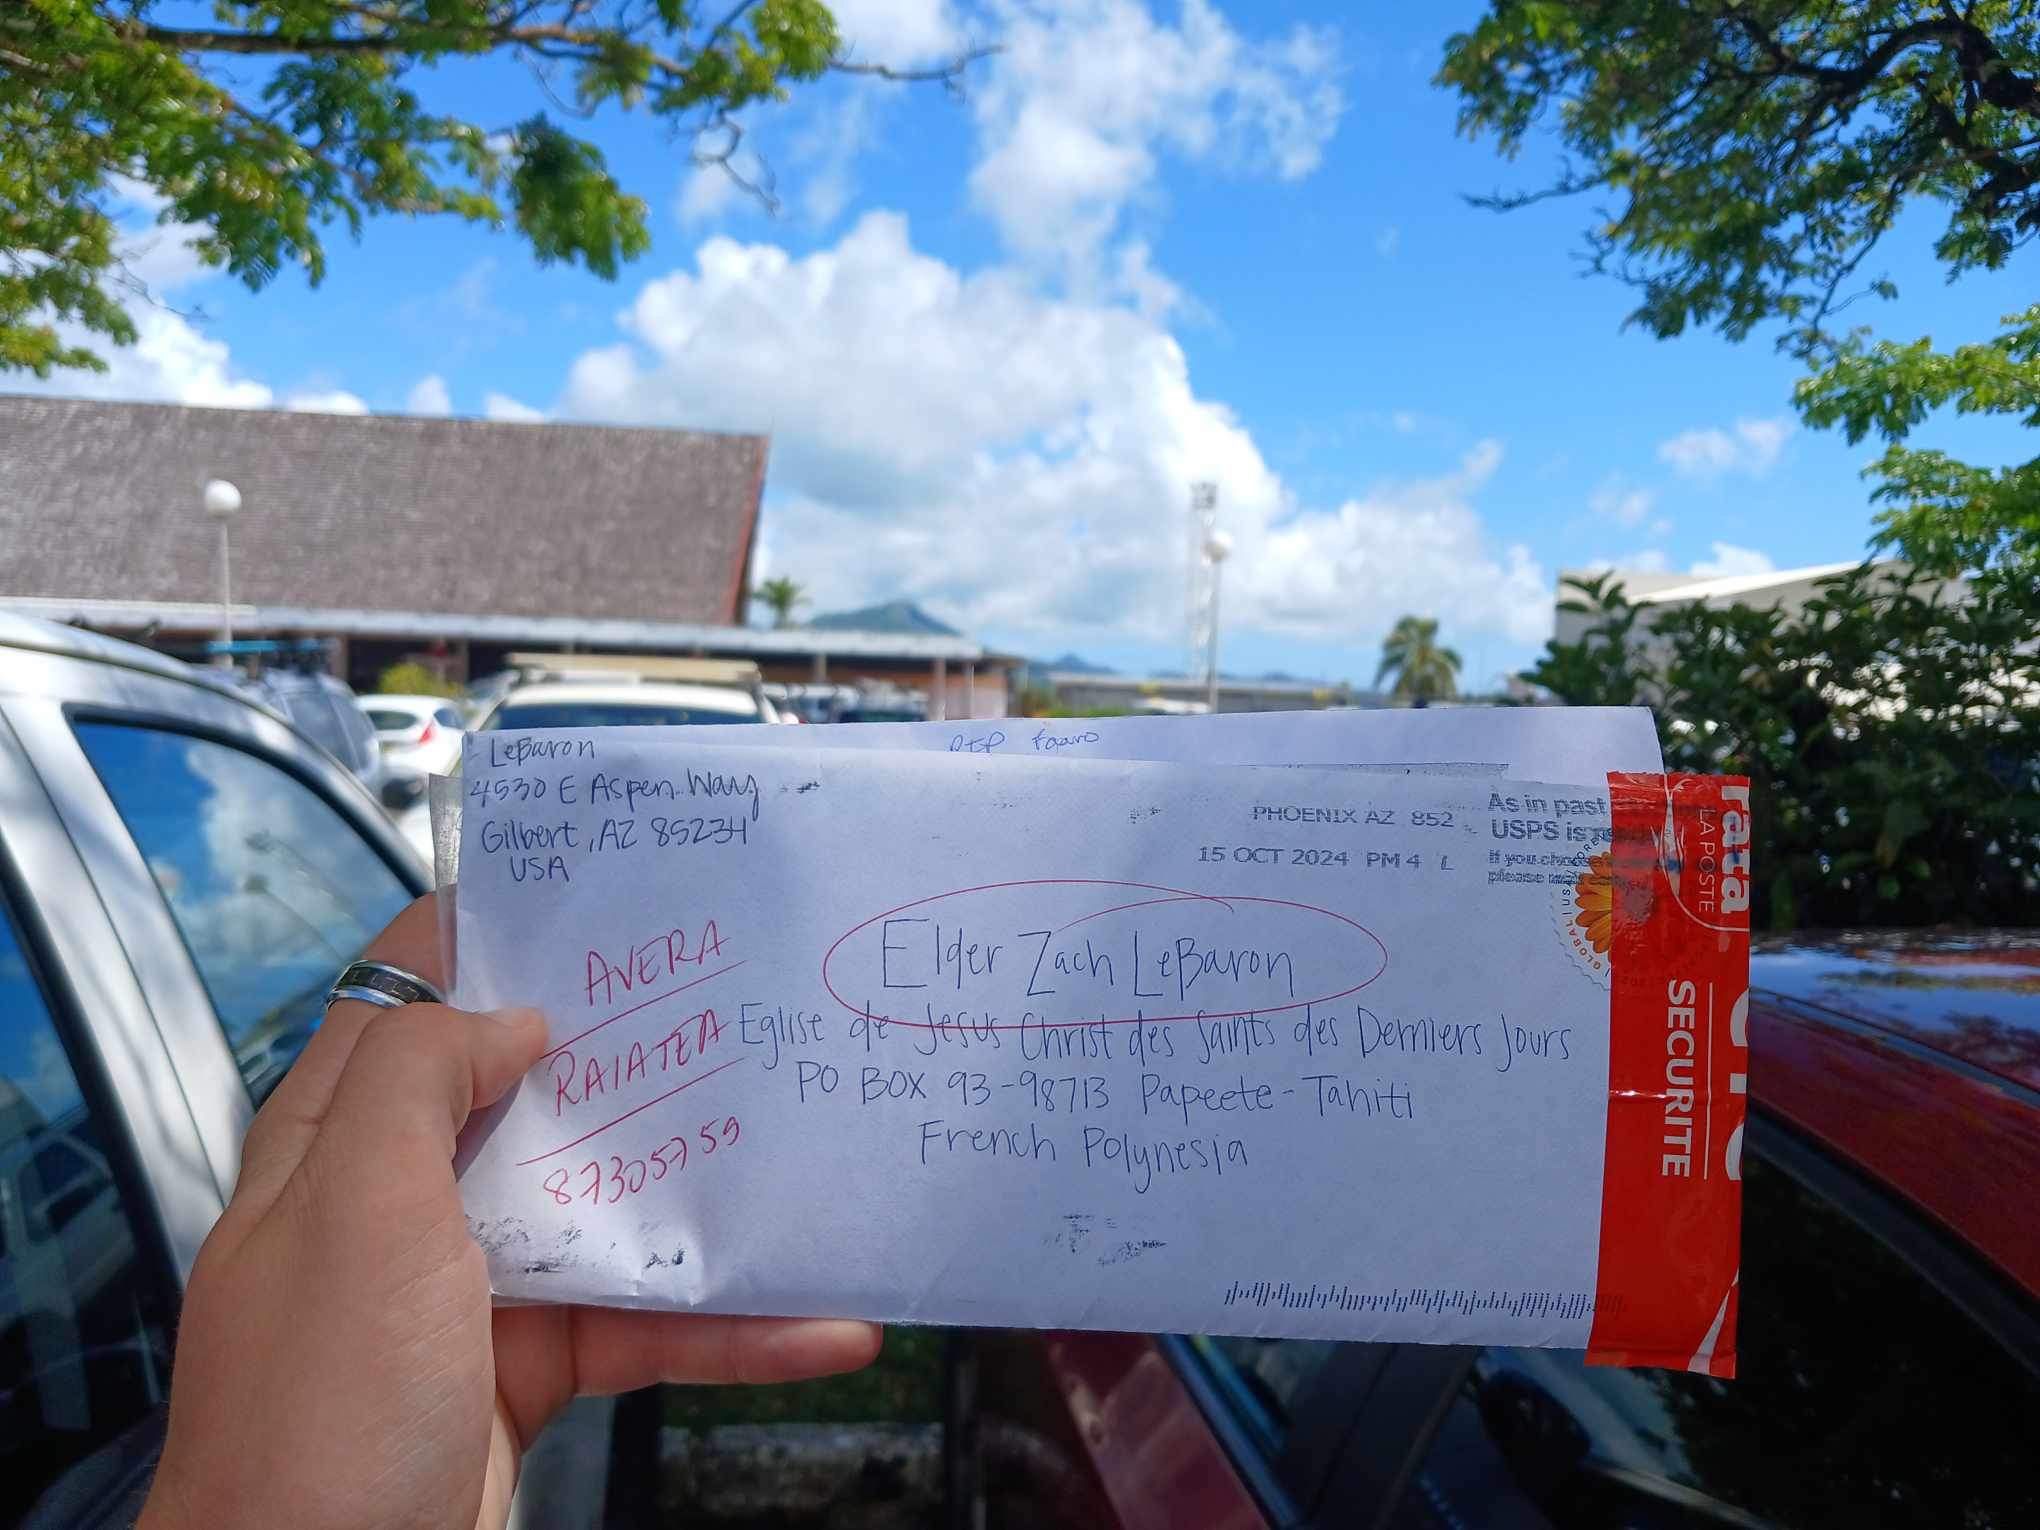 LeBaron
4530 E Aspen Way
Gilbert, AZ 85234
USA
PHOENIX AZ 852
15 OCT 2024 PM 4 L
As in past
USPS is
If you choose
please
GLOBAL
LA POSTE
SECURITE
AVERA
RAIATEA
87305759
Elder Zach LeBaron
Eglise de Jesus Christ des Saints des Derniers Jours
PO BOX 93-98713 Papeete-Tahiti
French Polynesia